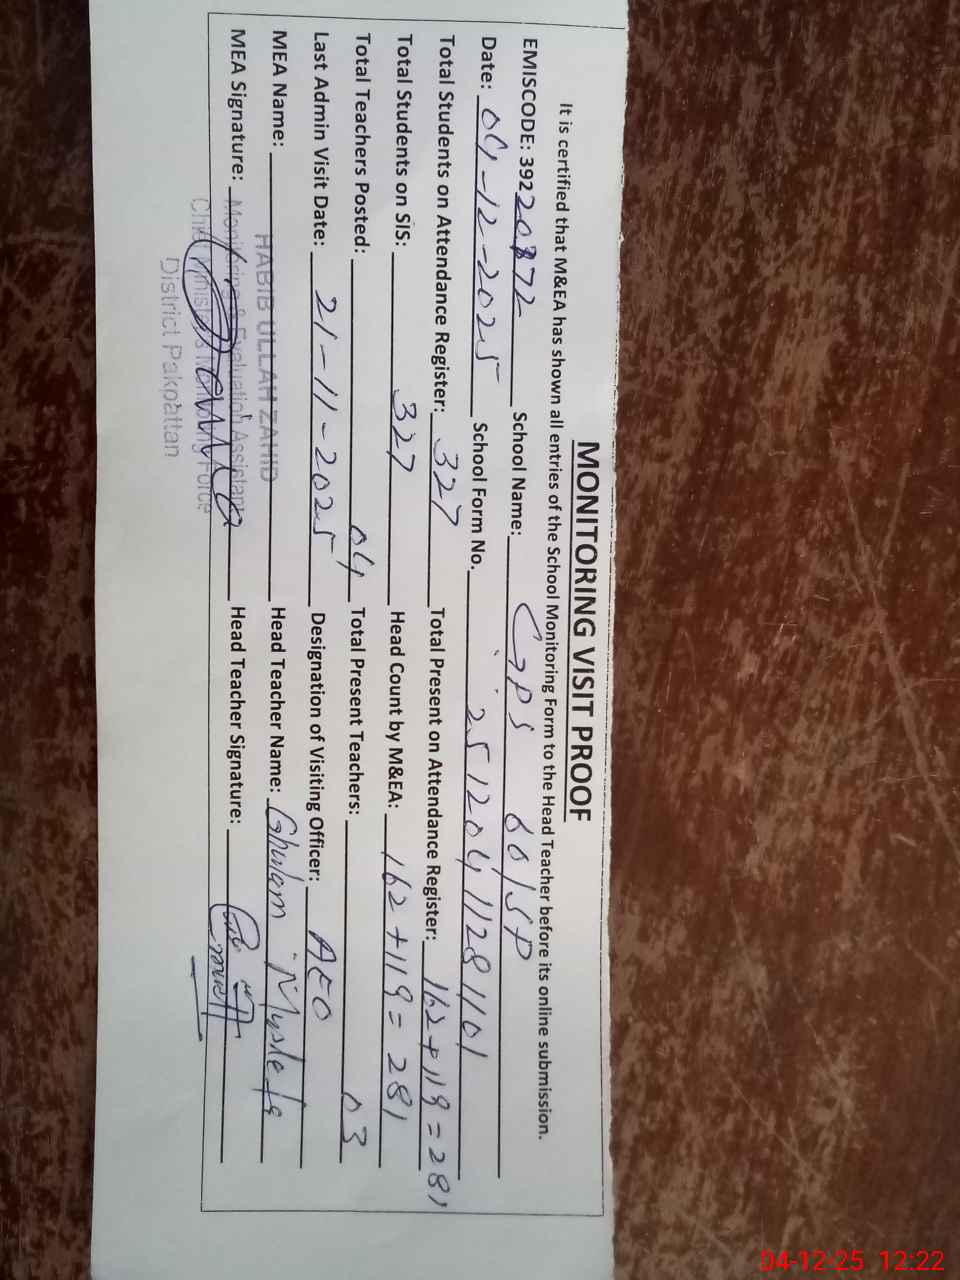 MONITORING VISIT PROOF
It is certified that M&EA has shown all entries of the School Monitoring Form to the Head Teacher before its online submission.
EMISCODE: 39220872 School Name: GPS 60/SP
Date: 04-12-2025 School Form No. 25120411281101
Total Students on Attendance Register: 327 Total Present on Attendance Register: 162+119=281
Total Students on SIS: 327 Head Count by M&EA: 162+119=281
Total Teachers Posted: 04 Total Present Teachers: 03
Last Admin Visit Date: 21-11-2025 Designation of Visiting Officer: AEO
MEA Name: HABIB ULLAH ZAHID Head Teacher Name: Ghulam Mustafa
MEA Signature: Monitoring & Evaluation Assistant Head Teacher Signature:
Chief Minister's Monitoring Force
District Pakpattan
04-12-25 12:22